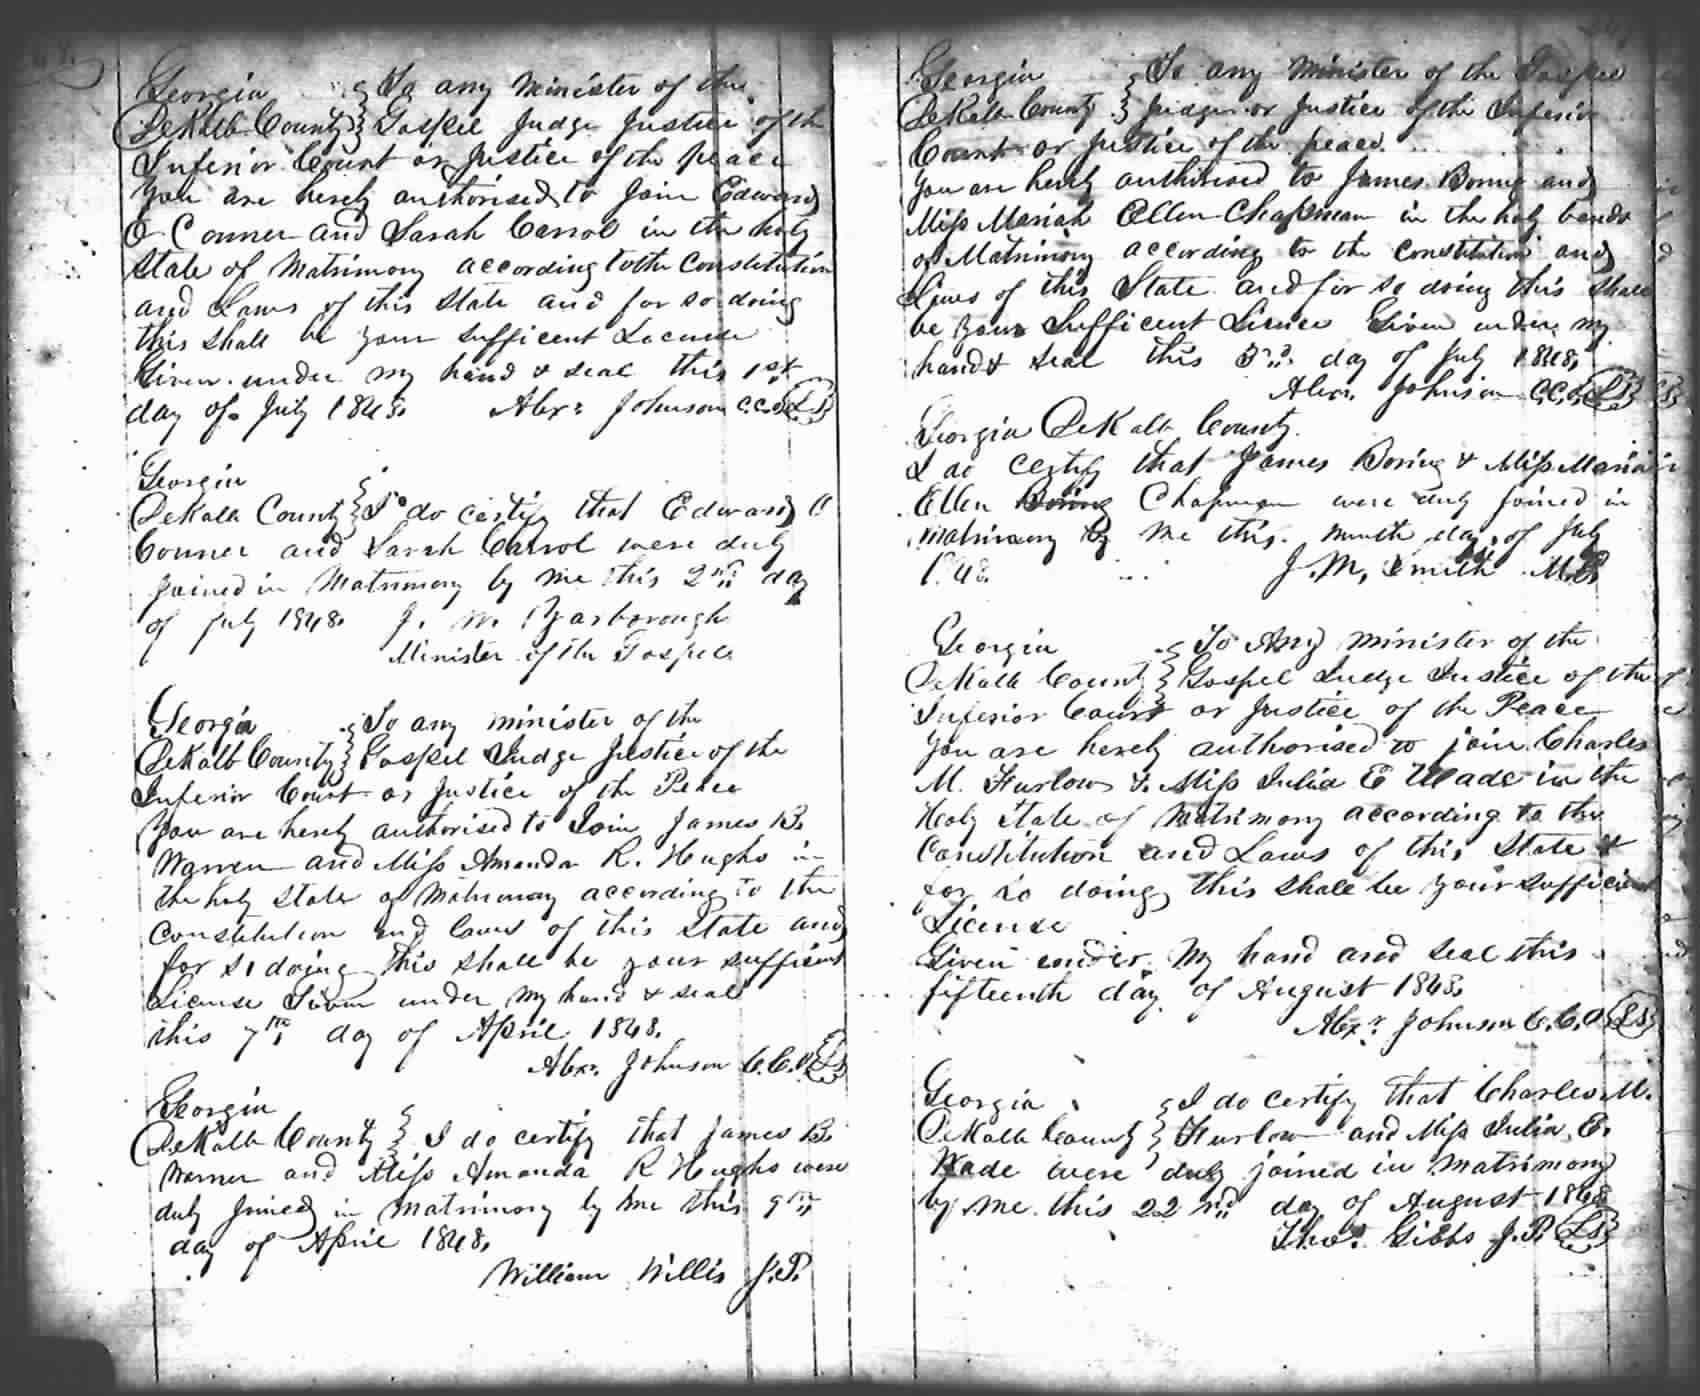 Georgia } To any minister of the
DeKalb County } Gospel Judge Justice of the
Inferior Court or Justice of the peace
You are herely authorised to join Edward
O Conner and Sarah Carrol in the holy
State of Matrimony according to the Constitution
and Laws of this State and for so doing
this shall be your sufficent Licence
Given under my hand & seal this 1st
day of July 1848. Alexr Johnson C.C.O. LS
Georgia
DeKalb County } I do certify that Edward O
Conner and Sarah Carrol were duly
joined in Matrimony by me this 2nd day
of July 1848. J. W. Yarborough
Minister of the Gospel
Georgia } To any minister of the
DeKalb County } Gospel Judge Justice of the
Inferior Court or Justice of the Peace
You are herely authorised to Join James B.
Warren and Miss Amanda R. Hughs in
the holy State of Matrimony according to the
constitution and laws of this State and
for so doing this shall be your sufficient
License Given under my hand & seal
this 7th day of April 1848.
Alexr. Johnson C.C.O. LS
Georgia
DeKalb County } I do certify that James B.
Warren and Miss Amanda R Hughs were
duly joined in matrimony by me this 9th
day of April 1848.
William Willis J.P.
Georgia } To any Minister of the Gospel
DeKalb County } Judge or Justice of the Inferior
Court or Justice of the peace.
You are herely authorised to James Boring and
Miss Mariah Ellen Chapman in the holy bands
of Matrimony according to the Constitution and
Laws of this State and for so doing this shall
be your Sufficent Licence Given under my
hand & seal this 3rd day of July 1848.
Alexr. Johnson C.C.O. LS
Georgia DeKalb County.
I do certify that James Boring & Miss Maria
Ellen Boring Chapman were duly joined in
matrimony by me this month day of July
1848. J. M. Smith M.G.
Georgia } To Any minister of the
DeKalb County } Gospel Judge Justice of the
Inferior Court or Justice of the Peace
You are herely authorised to join Charles
M. Furlow & Miss Julia E Wade in the
Holy State of Matrimony according to the
Constitution and Laws of this State &
for so doing this shall be your sufficient
License
Given under my hand and seal this
fifteenth day of August 1848.
Alexr Johnson C.C.O. LS
Georgia } I do certify that Charles M.
DeKalb County } Furlow and Miss Julia E.
Wade were duly joined in matrimony
by me this 22nd day of August 1848
Thos. Gibbs J.P. LS